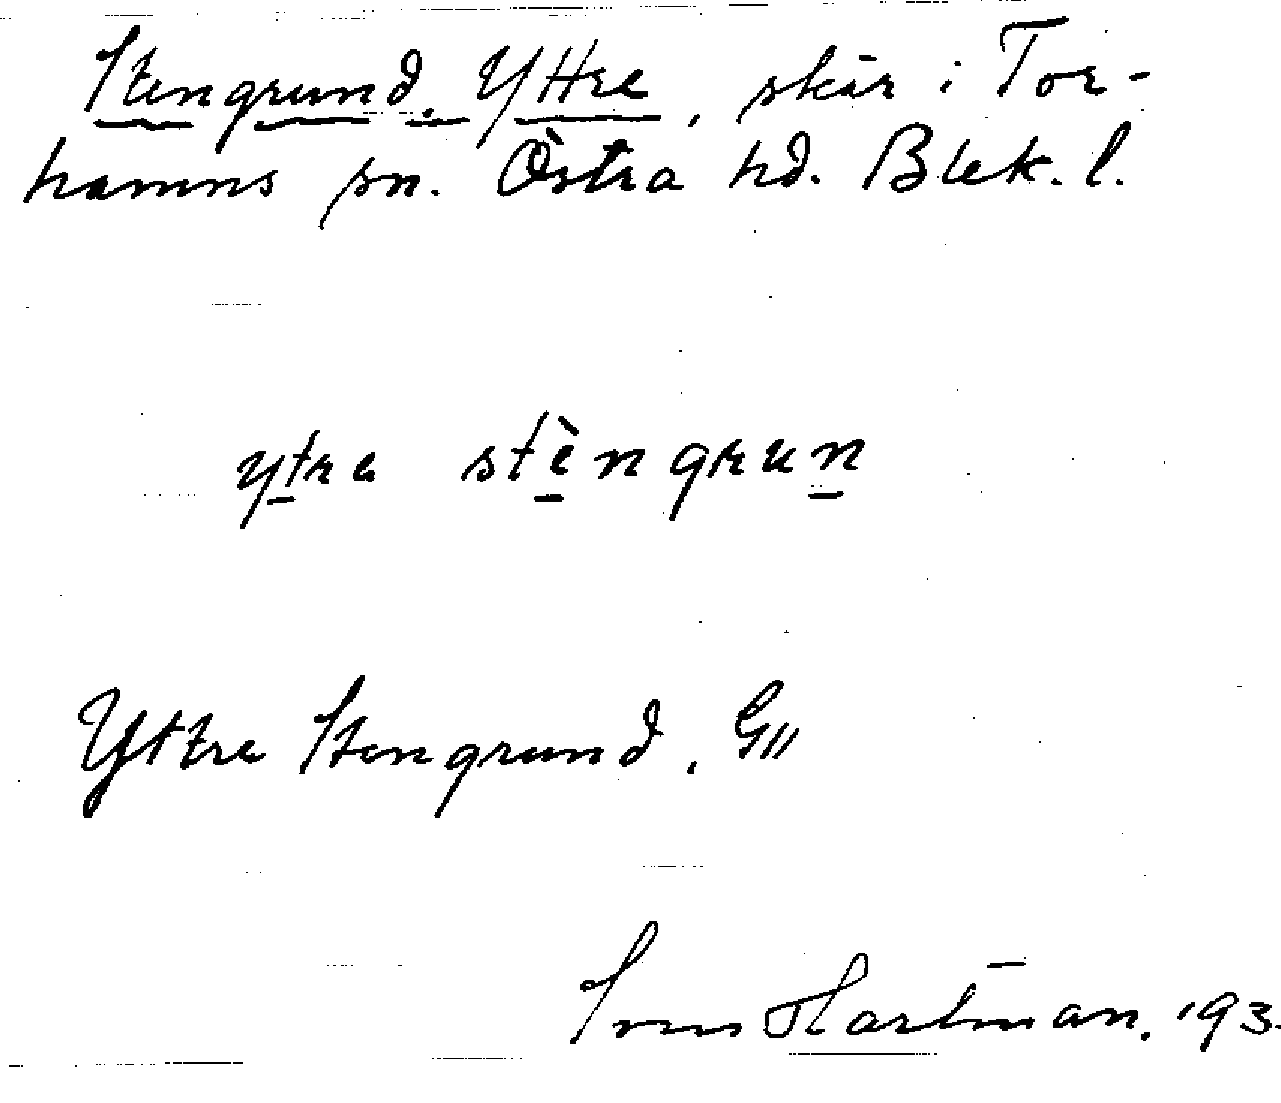 Stengrund, Yttre, skär i Tor-
hamns sn. Östra hd. Blek. l.
ytra stèngrun
Yttre Stengrund. G//
Sven Hartman. 193.